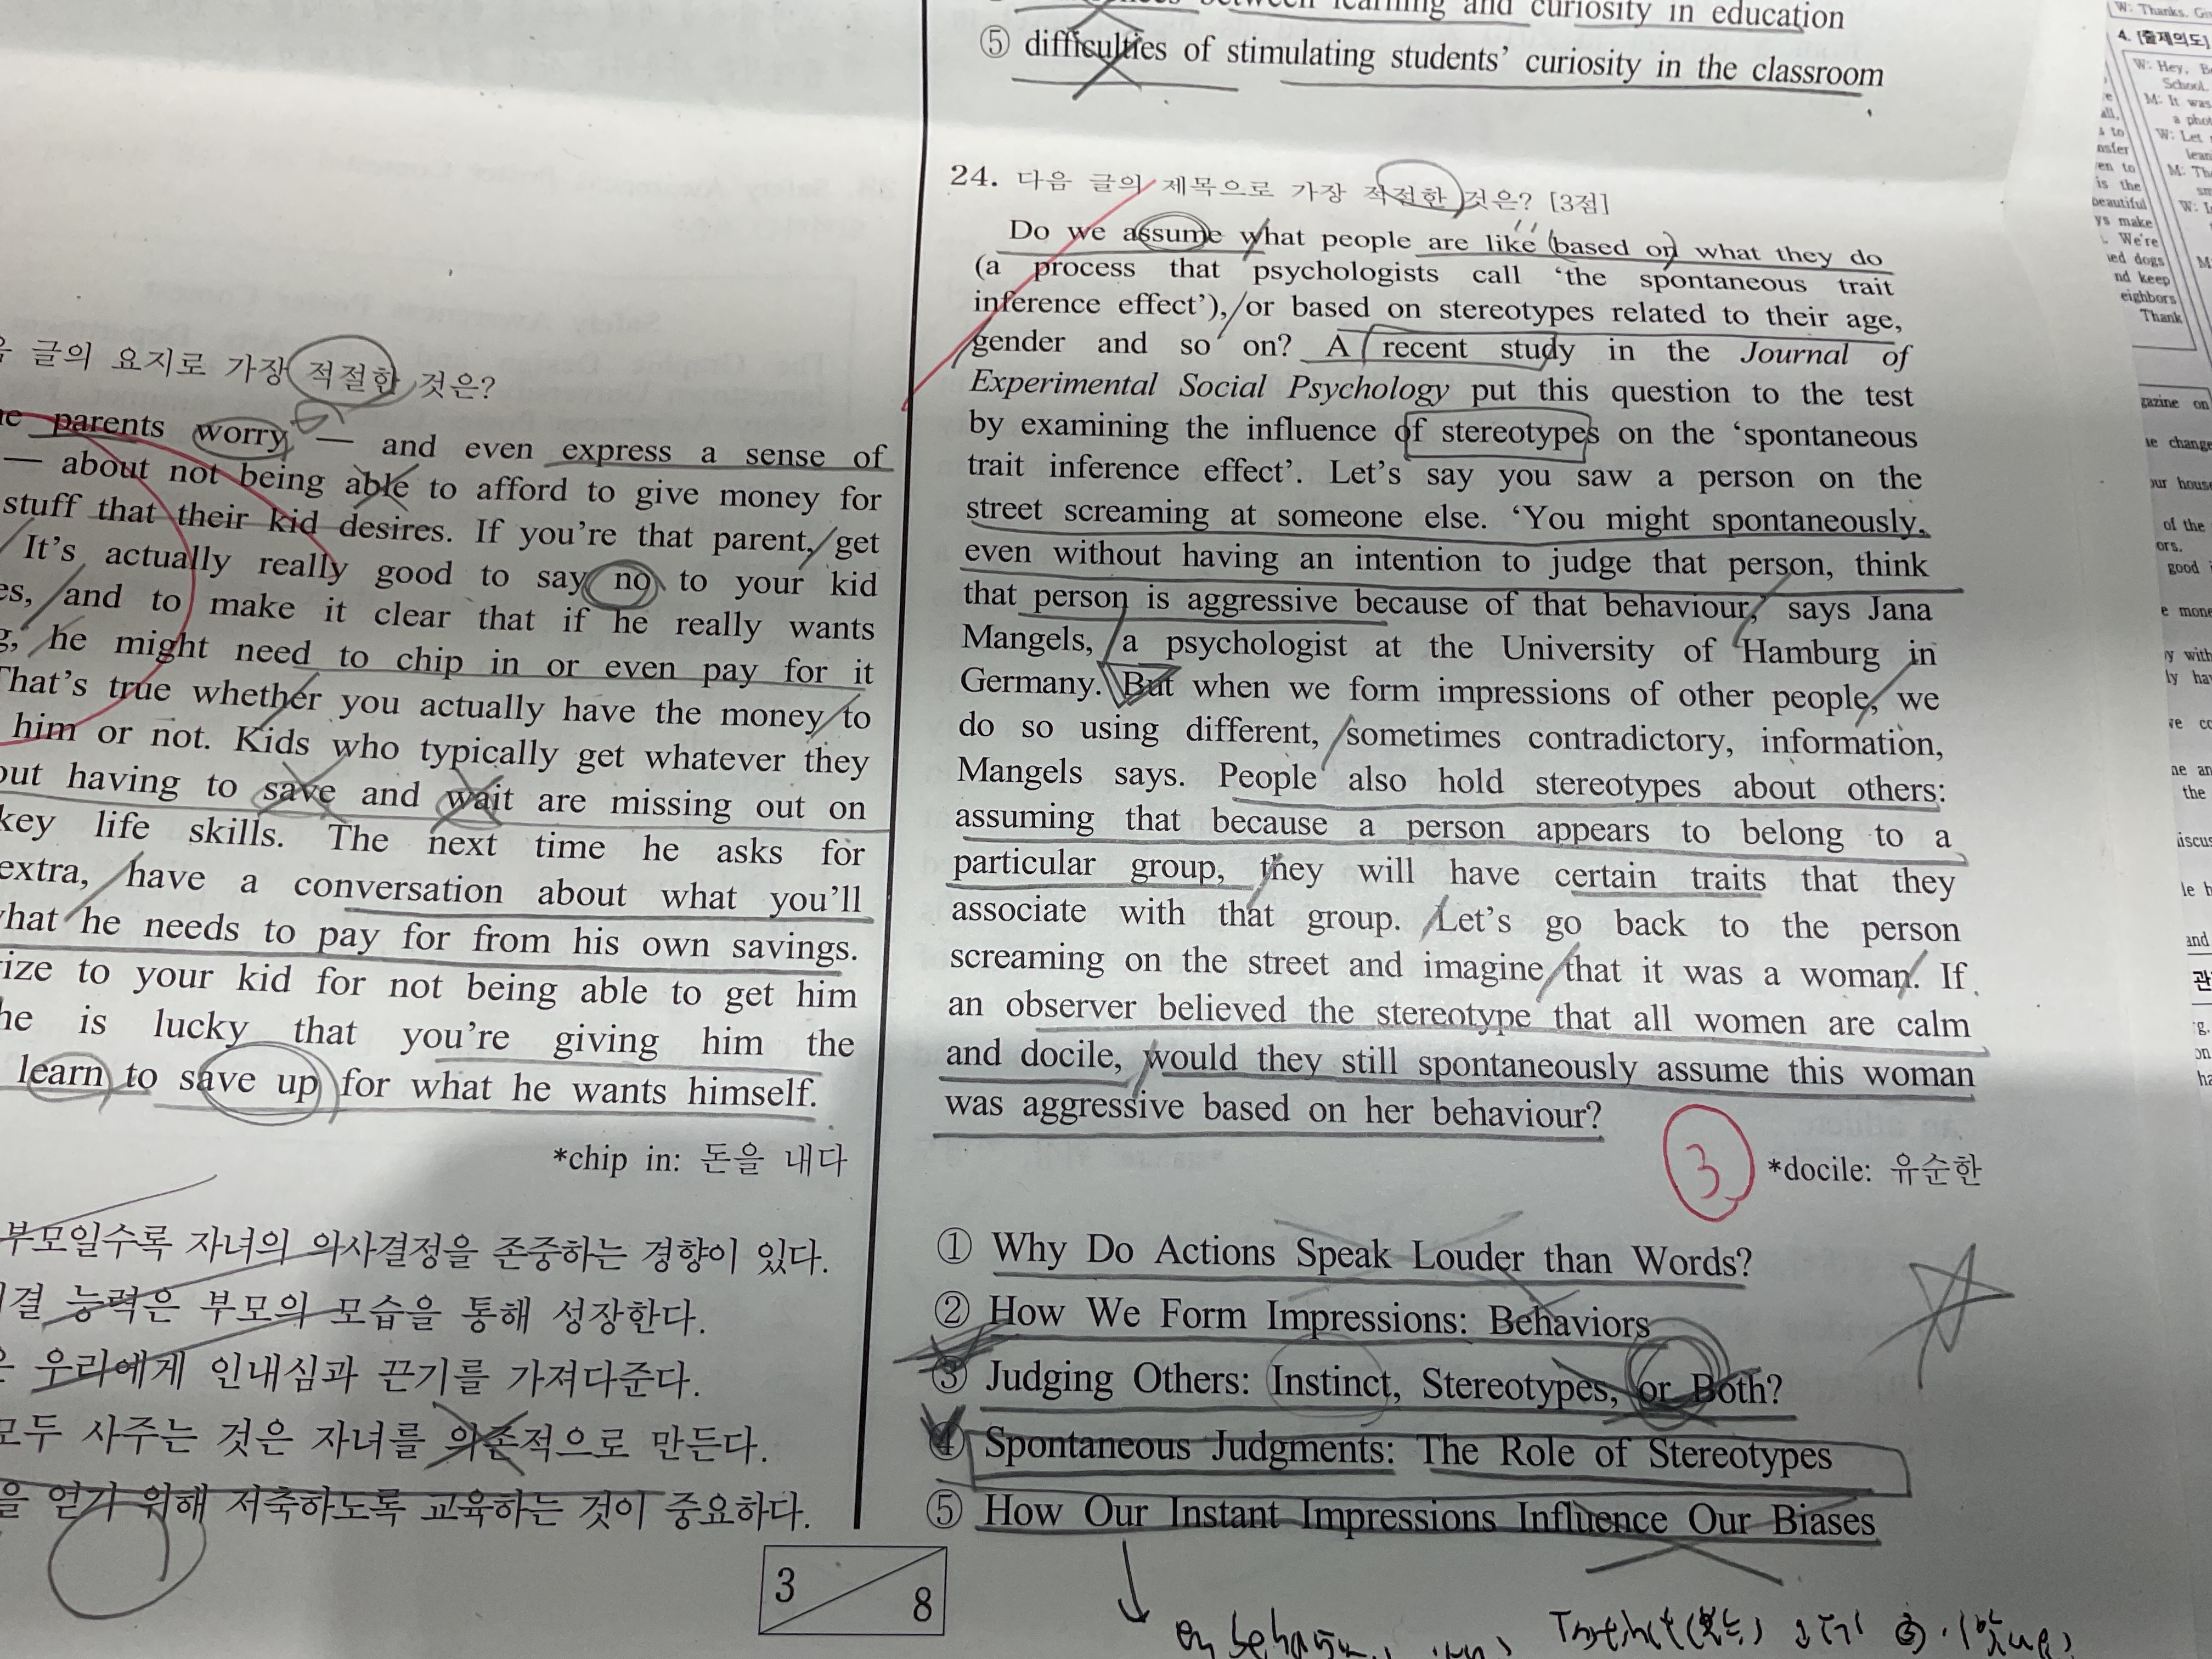 between learning and curiosity in education
⑤ difficulties of stimulating students' curiosity in the classroom
글의 요지로 가장 적절한 것은?
parents worry — and even express a sense of
— about not being able to afford to give money for
stuff that their kid desires. If you're that parent, get
It's actually really good to say no to your kid
and to make it clear that if he really wants
he might need to chip in or even pay for it
That's true whether you actually have the money to
him or not. Kids who typically get whatever they
out having to save and wait are missing out on
key life skills. The next time he asks for
extra, have a conversation about what you'll
what he needs to pay for from his own savings.
ize to your kid for not being able to get him
he is lucky that you're giving him the
learn to save up for what he wants himself.
*chip in: 돈을 내다
부모일수록 자녀의 의사결정을 존중하는 경향이 있다.
결 능력은 부모의 모습을 통해 성장한다.
우리에게 인내심과 끈기를 가져다준다.
모두 사주는 것은 자녀를 의존적으로 만든다.
을 얻기 위해 저축하도록 교육하는 것이 중요하다.
24. 다음 글의 제목으로 가장 적절한 것은? [3점]
Do we assume what people are like based on what they do
(a process that psychologists call 'the spontaneous trait
inference effect'), or based on stereotypes related to their age,
gender and so on? A recent study in the Journal of
Experimental Social Psychology put this question to the test
by examining the influence of stereotypes on the 'spontaneous
trait inference effect'. Let's say you saw a person on the
street screaming at someone else. 'You might spontaneously,
even without having an intention to judge that person, think
that person is aggressive because of that behaviour,' says Jana
Mangels, a psychologist at the University of Hamburg in
Germany. But when we form impressions of other people, we
do so using different, sometimes contradictory, information,
Mangels says. People also hold stereotypes about others:
assuming that because a person appears to belong to a
particular group, they will have certain traits that they
associate with that group. Let's go back to the person
screaming on the street and imagine that it was a woman. If
an observer believed the stereotype that all women are calm
and docile, would they still spontaneously assume this woman
was aggressive based on her behaviour?
3
*docile: 유순한
① Why Do Actions Speak Louder than Words?
② How We Form Impressions: Behaviors
③ Judging Others: Instinct, Stereotypes, or Both?
④ Spontaneous Judgments: The Role of Stereotypes
⑤ How Our Instant Impressions Influence Our Biases
3
8
W: Thanks.
4. [출제의도]
W: Hey,
School.
M: It was
W: Let
M:
is the
beautiful
ys make
We're
ied dogs
nd keep
eighbors
Thank